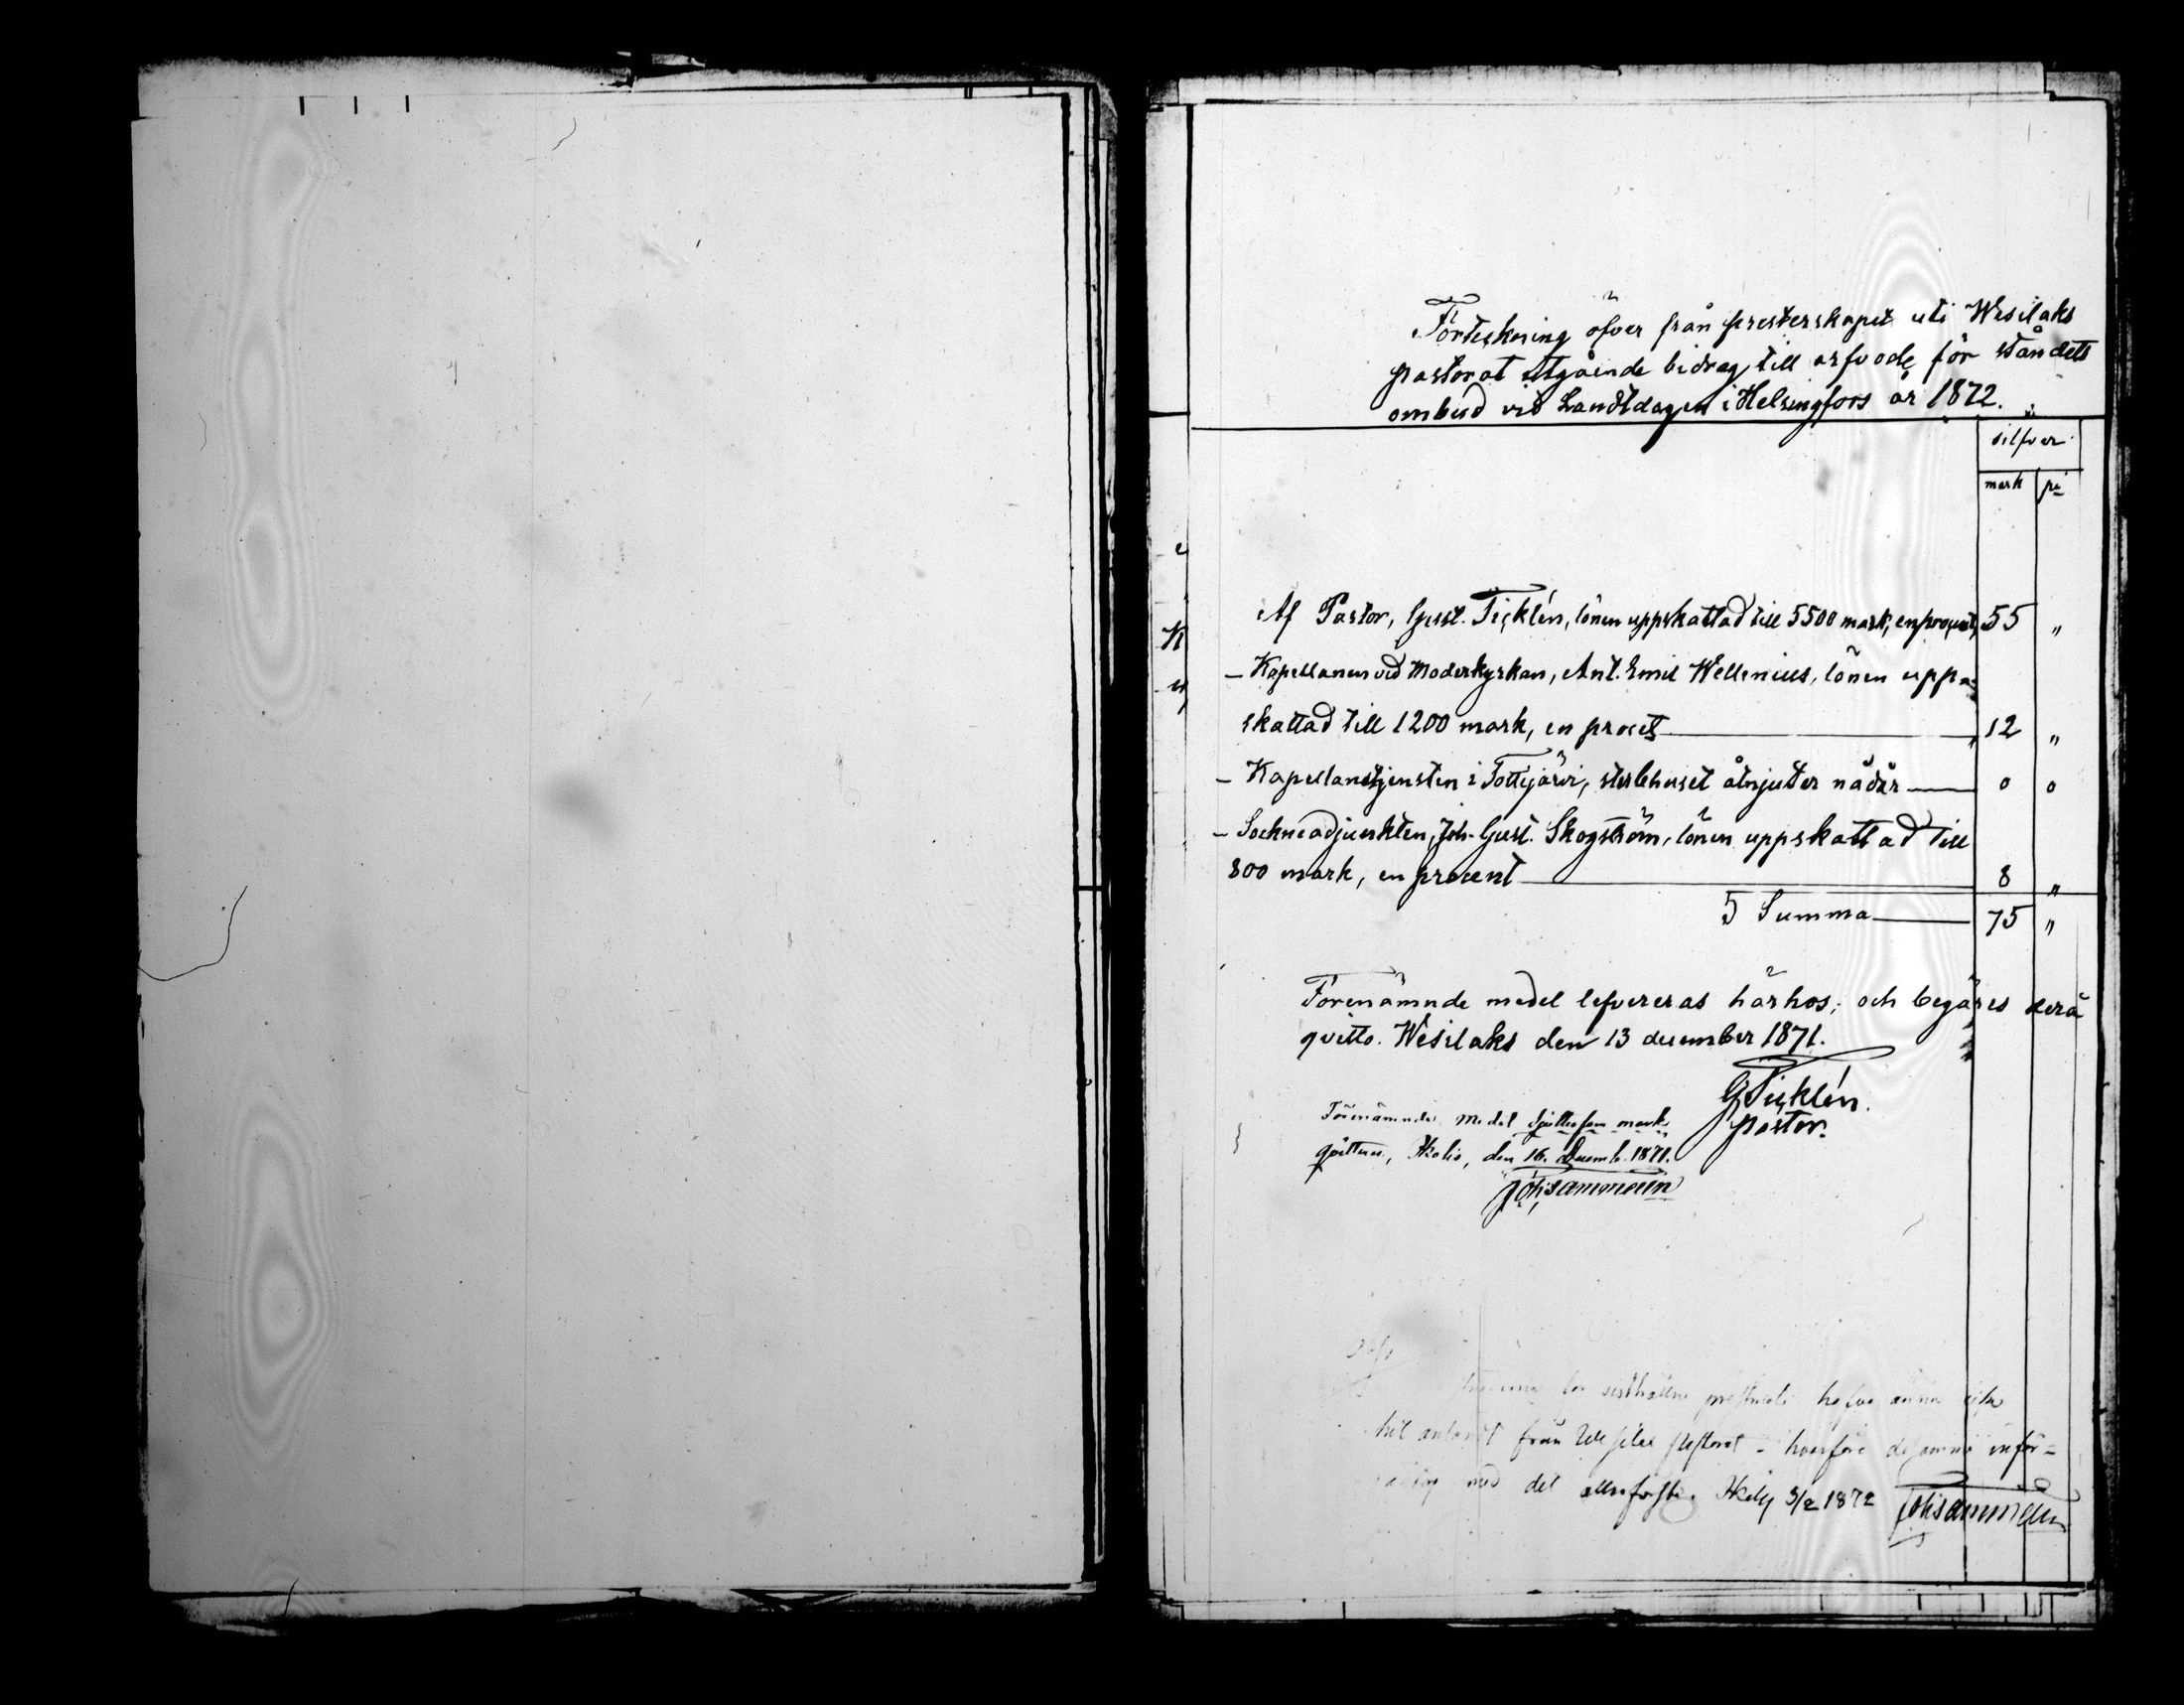 Förteckning öfver från presterskapet uti Wesilaks
pastorat utgående bidrag till arfvode för ståndets
ombud vid Landtdagen i Helsingfors år 1872.
silfver
mark pi
Af Pastor, Gust. Ticklén, lönen uppskattad till 5500 mark, en procent, 55 "
– Kapellanen vid Moderkyrkan, Ant. Emil Wellenius, lönen upp-
skattad till 1200 mark, en procet 12 "
– Kapellanstjensten i Tottijärvi, sterbhuset åtnjutter nådår 0 0
– Sockneadjunkten, Joh. Gust. Skogström, lönen uppskattad till
800 mark, en procent 8 "
Summa 75 "
Förenämnde medel lefvereras härhos; och begäres derå
qvitto. Wesilaks den 13 december 1871.
G Ticklén.
pastor.
Förenämnde medel sjuttiofem mark
qvitteras, den 16. Decemb. 1871.
sisthållne hafva ännu
från hvarföre införe
med det allraförsta. 3/2 1872